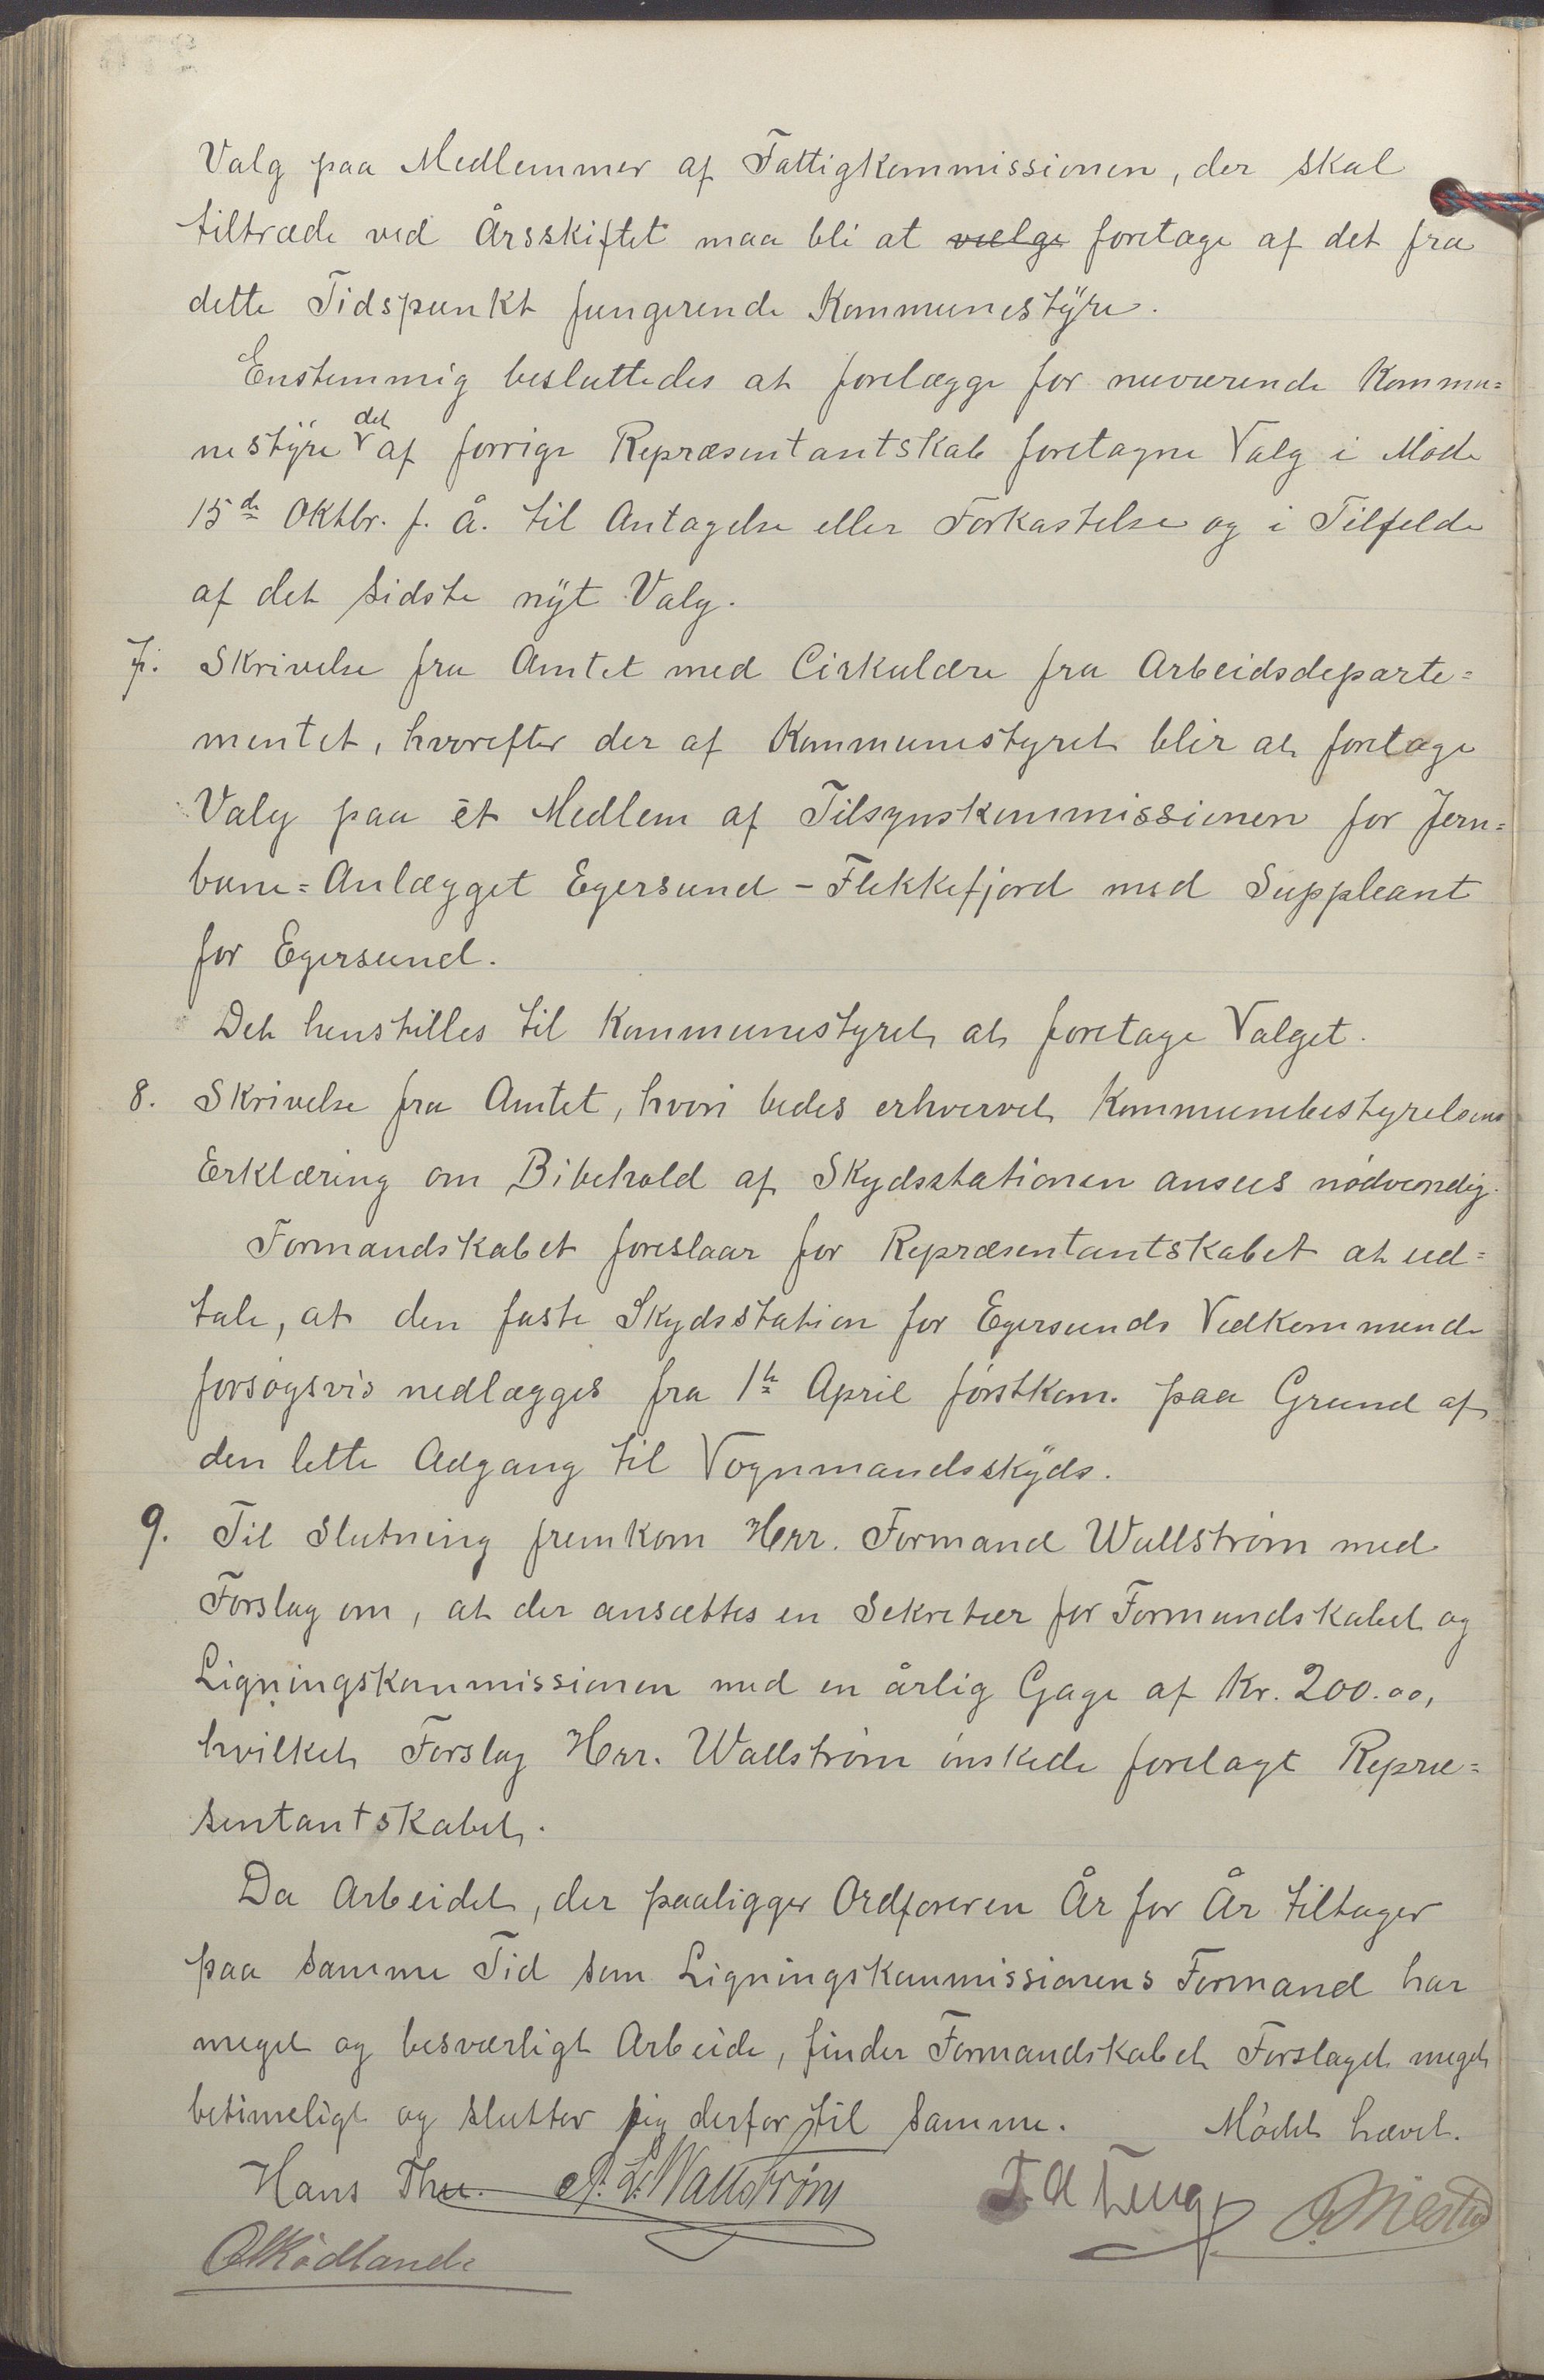 Valg paa Medlemmer af Fattigkommissionen, der skal
tiltræde ved Årsskiftet maa bli at vælge foretage af det fra
dette Tidspunkt fungerende Kommunestÿre.
Enstemmig besluttedes at forelægge for nuværende Kommu=
nestÿre det af forrige Repræsentantskab foretagne Valg i Møde
15de Oktbr. f. å. til Antagelse eller Forkastelse og i Tilfelde
af det sidste nÿt Valg.
7. Skrivelse fra Amtet med Cirkulære fra Arbeidsdeparte=
mentet, hvorefter der af Kommunestyret blir at foretage
Valg paa ét Medlem af Tilsynskommissionen for Jern=
bane=Anlægget Egersund - Flekkefjord med Suppleant
for Egersund.
Det henstilles til Kommunestyret at foretage Valget.
8. Skrivelse fra Amtet, hvori bedes erhvervet Kommunebestyrelsens
Erklæring om Bibehold af Skydsstationen ansees nødvendig.
Formandskabet foreslaar for Repræsentantskabet at ud=
tale, at den faste Skydsstation for Egersunds Vedkommende
forsøgsvis nedlægges fra 1ste April førstkom. paa Grund af
den lette Adgang til Vognmandsskÿds.
9. Til Slutning fremkom Herr. Formand Wallstrøm med
Forslag om, at der ansættes en Sekretær for Formandskabet og
Ligningskommissionen med en årlig Gage af Kr. 200.00,
hvilket Forslag Herr. Wallstrøm ønskede forelagt Repræ=
sentantskabet.
Da Arbeidet, der paaligger Ordføreren År for År tiltager
paa samme Tid som Ligningskommissionens Formand har
meget og besværligt Arbeide, finder Formandskabet Forslaget meget
betimeligt og slutter sig derfor til samme. Mødet hævet.
Hans Thu. A. L. Wallstrøm T. A. Feug
O Kødland